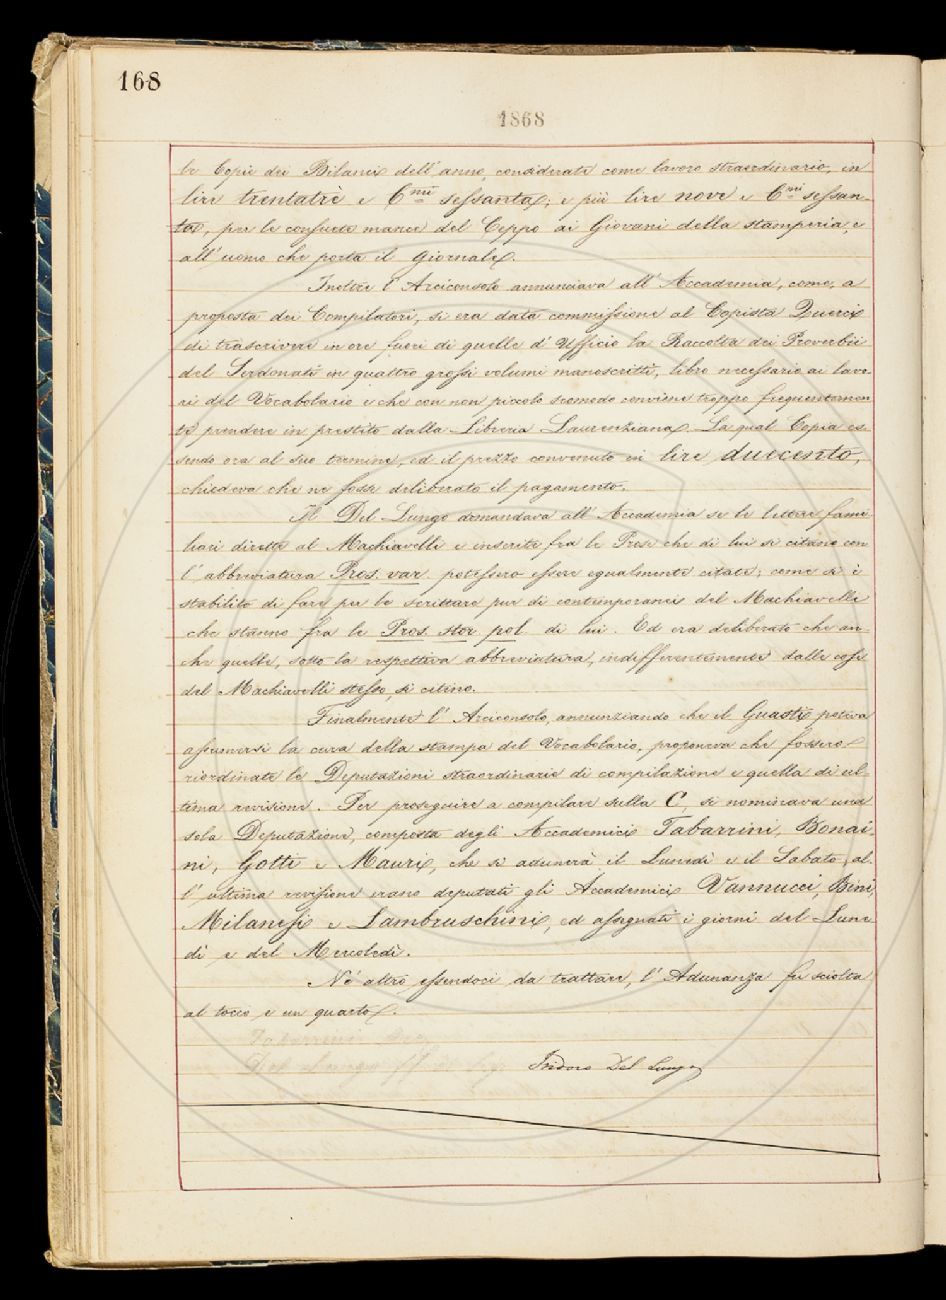 168
1868
le Copie dei Bilanci dell'anno, considerate come lavoro straordinario, in
lire trentatrè e C.mi sessanta; e più lire nove e C.mi sessan-
ta, per le consuete mance del Ceppo ai Giovani della stamperia, e
all'uomo che porta il giornale.
Inoltre l'Arciconsolo annunciava all'Accademia, come, a
proposta dei Compilatori, si era data commissione al Copista Querci
di trascrivere in ore fuori di quelle d'Ufficio la Raccolta dei Proverbii
del Serdonati in quattro grossi volumi manoscritti, libro necessario ai lavo-
ri del Vocabolario e che con non piccolo scomodo conviene troppo frequentemen-
te prendere in prestito dalla Libreria Laurenziana. La qual Copia es-
sendo ora al suo termine, ed il prezzo convenuto in lire duecento,
chiedeva che ne fosse deliberato il pagamento.
Il Del Lungo domandava all'Accademia se le lettere fami-
liari dirette al Machiavelli e inserite fra le Prose che di lui si citano con
l'abbreviatura Pros. var. potessero essere egualmente citate; come si è
stabilito di fare per le scritture pur di contemporanei del Machiavelli
che stanno fra le Pros. stor. pol. di lui. Ed era deliberato che an-
che quelle, sotto la respettiva abbreviatura, indifferentemente dalle cose
del Machiavelli stesso, si citino.
Finalmente l'Arciconsolo, annunziando che il Guasti poteva
assumersi la cura della stampa del Vocabolario, proponeva che fossero
riordinate le Deputazioni straordinarie di compilazione e quella di ul-
tima revisione. Per proseguire a compilare sulla C, si nominava una
sola Deputazione, composta degli Accademici Tabarrini, Bonai-
ni, Gotti e Mauri, che si adunerà il Lunedì e il Sabato; al-
l'ultima revisione erano deputati gli Accademici Vannucci, Bini,
Milanesi e Lambruschini, ed assegnati i giorni del Lune-
dì e del Mercoledì.
Nè altro essendoci da trattare, l'Adunanza fu sciolta
al tocco e un quarto.
Tabarrini
Del Lungo
Isidoro Del Lungo